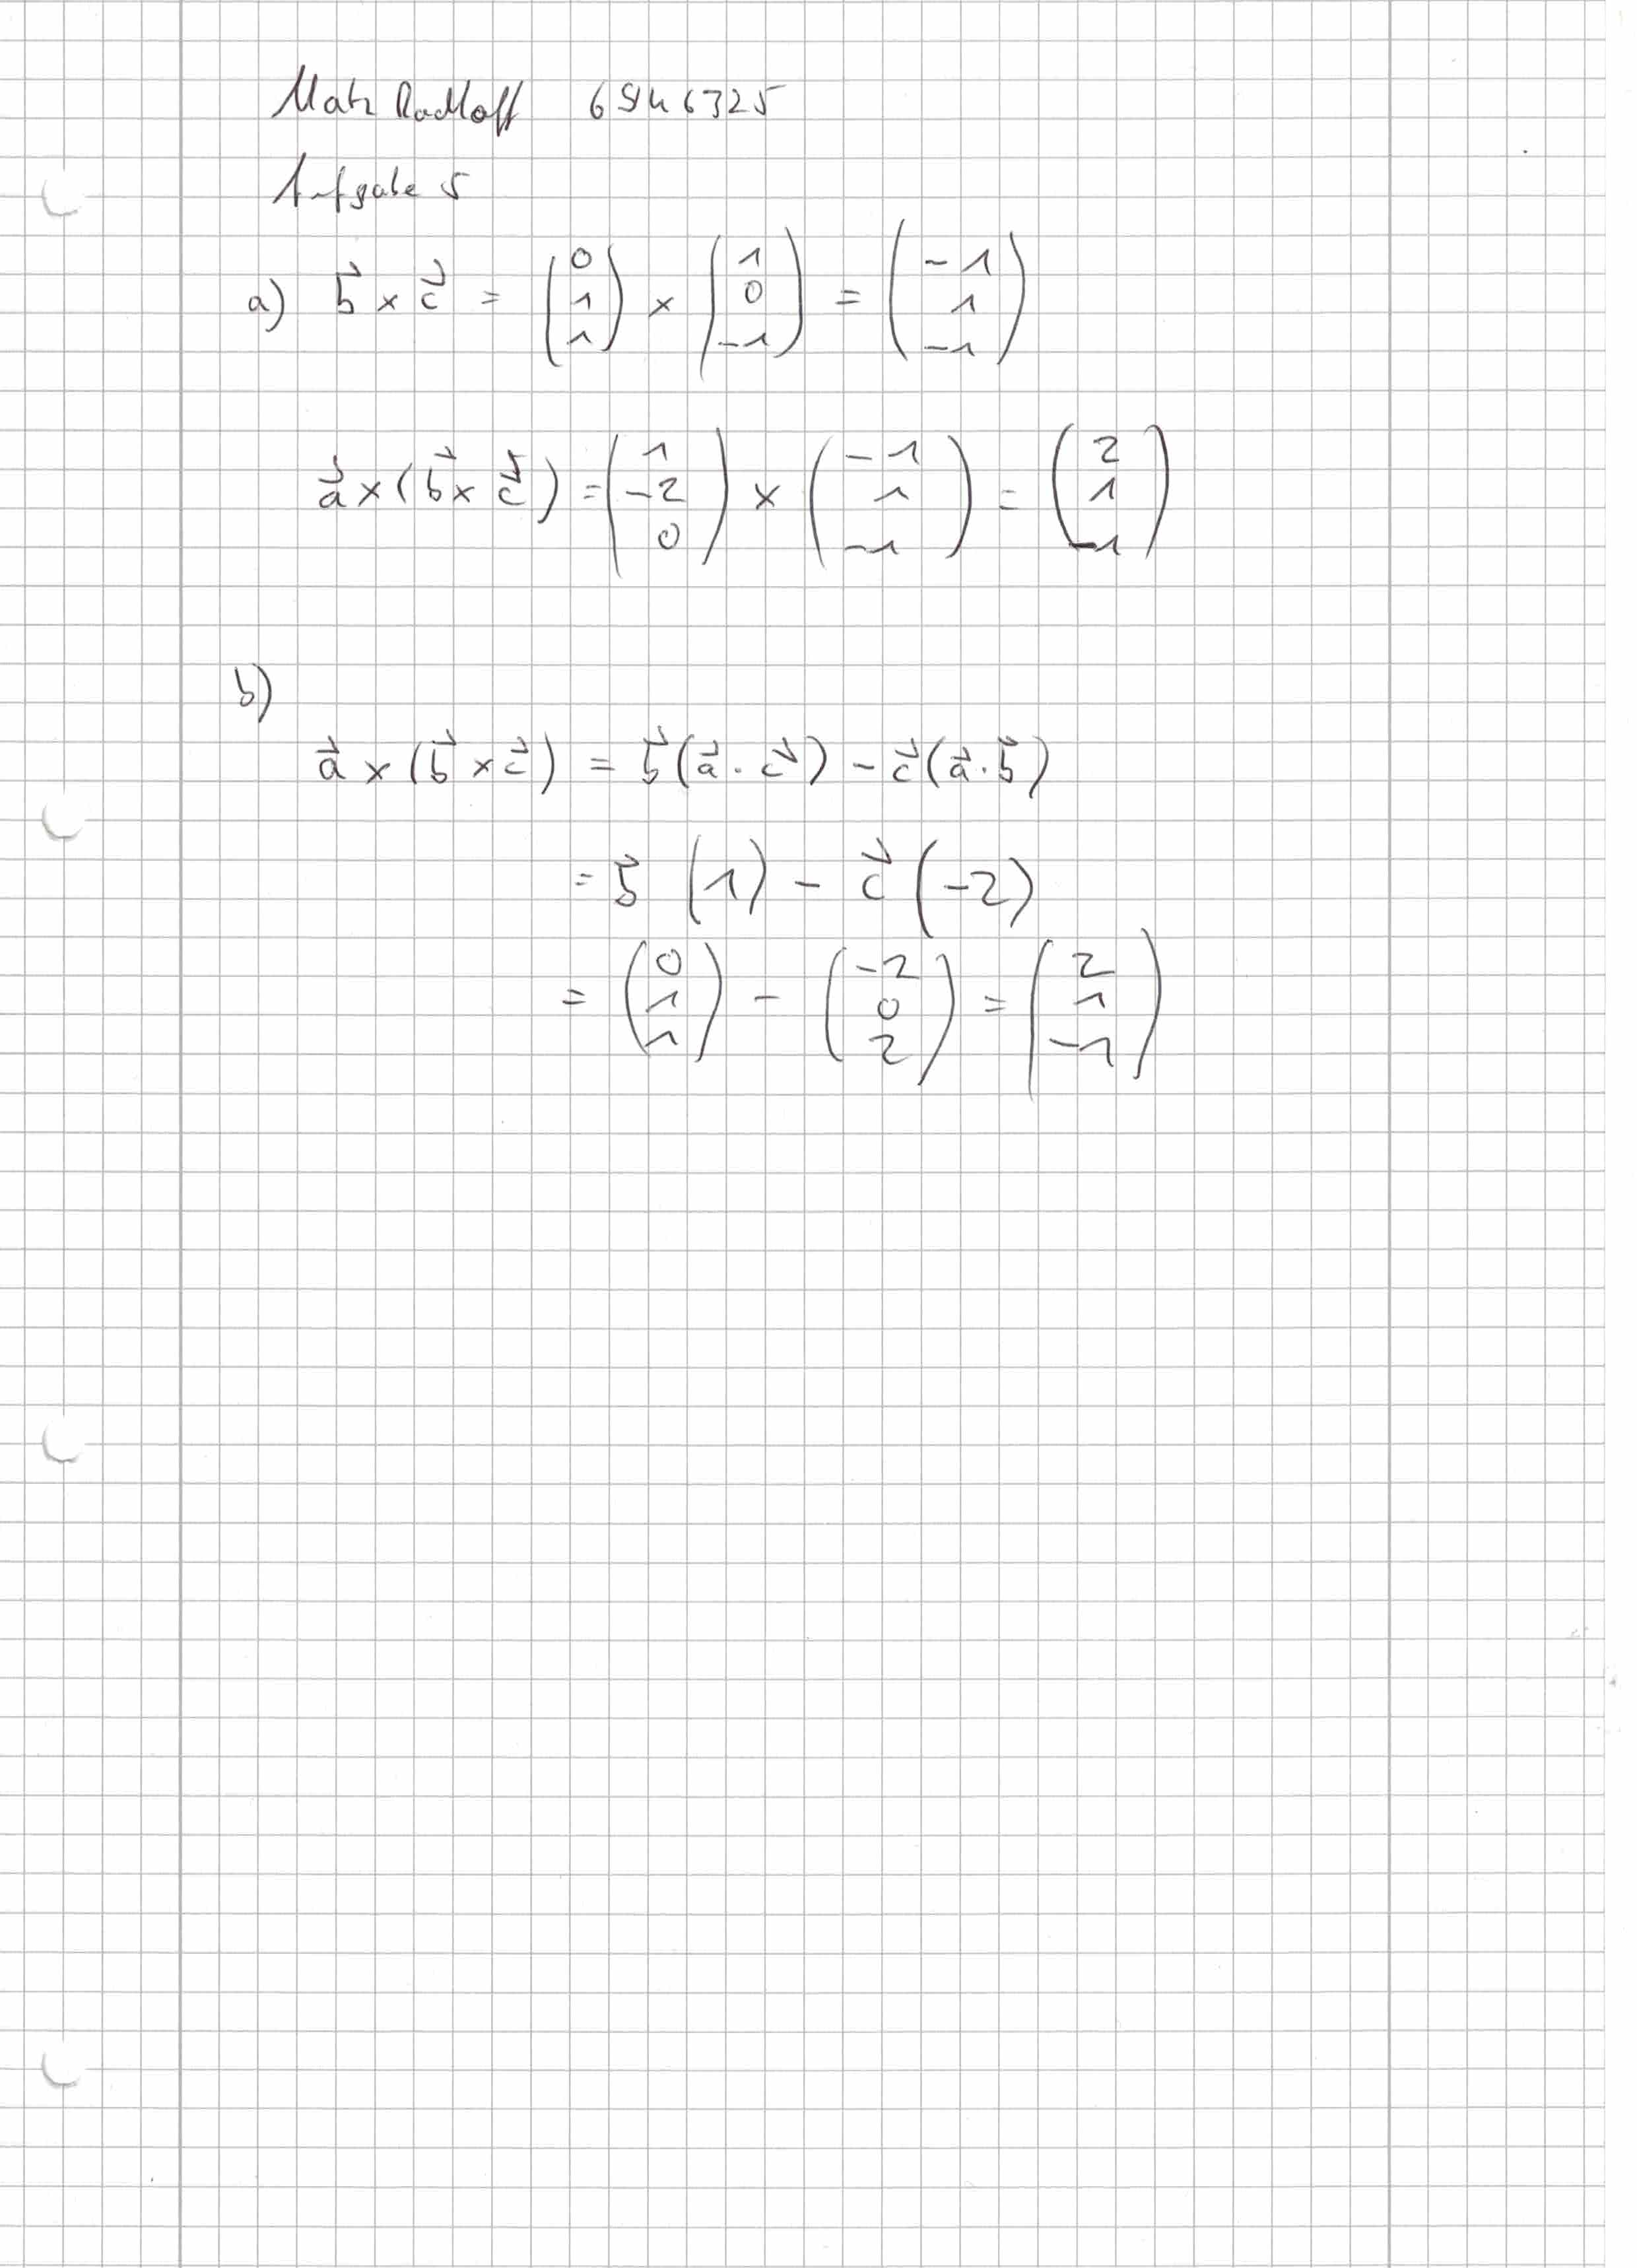 Mats Radloff 6946325
Aufgabe 5
a) b⃗ × c⃗ = (0 1 1) × (1 0 -1) = (-1 1 -1)
a⃗ × (b⃗ × c⃗) = (1 -2 0) × (-1 1 -1) = (2 1 -1)
b)
a⃗ × (b⃗ × c⃗) = b⃗(a⃗ · c⃗) - c⃗(a⃗ · b⃗)
= b⃗ (1) - c⃗ (-2)
= (0 1 1) - (-2 0 2) = (2 1 -1)